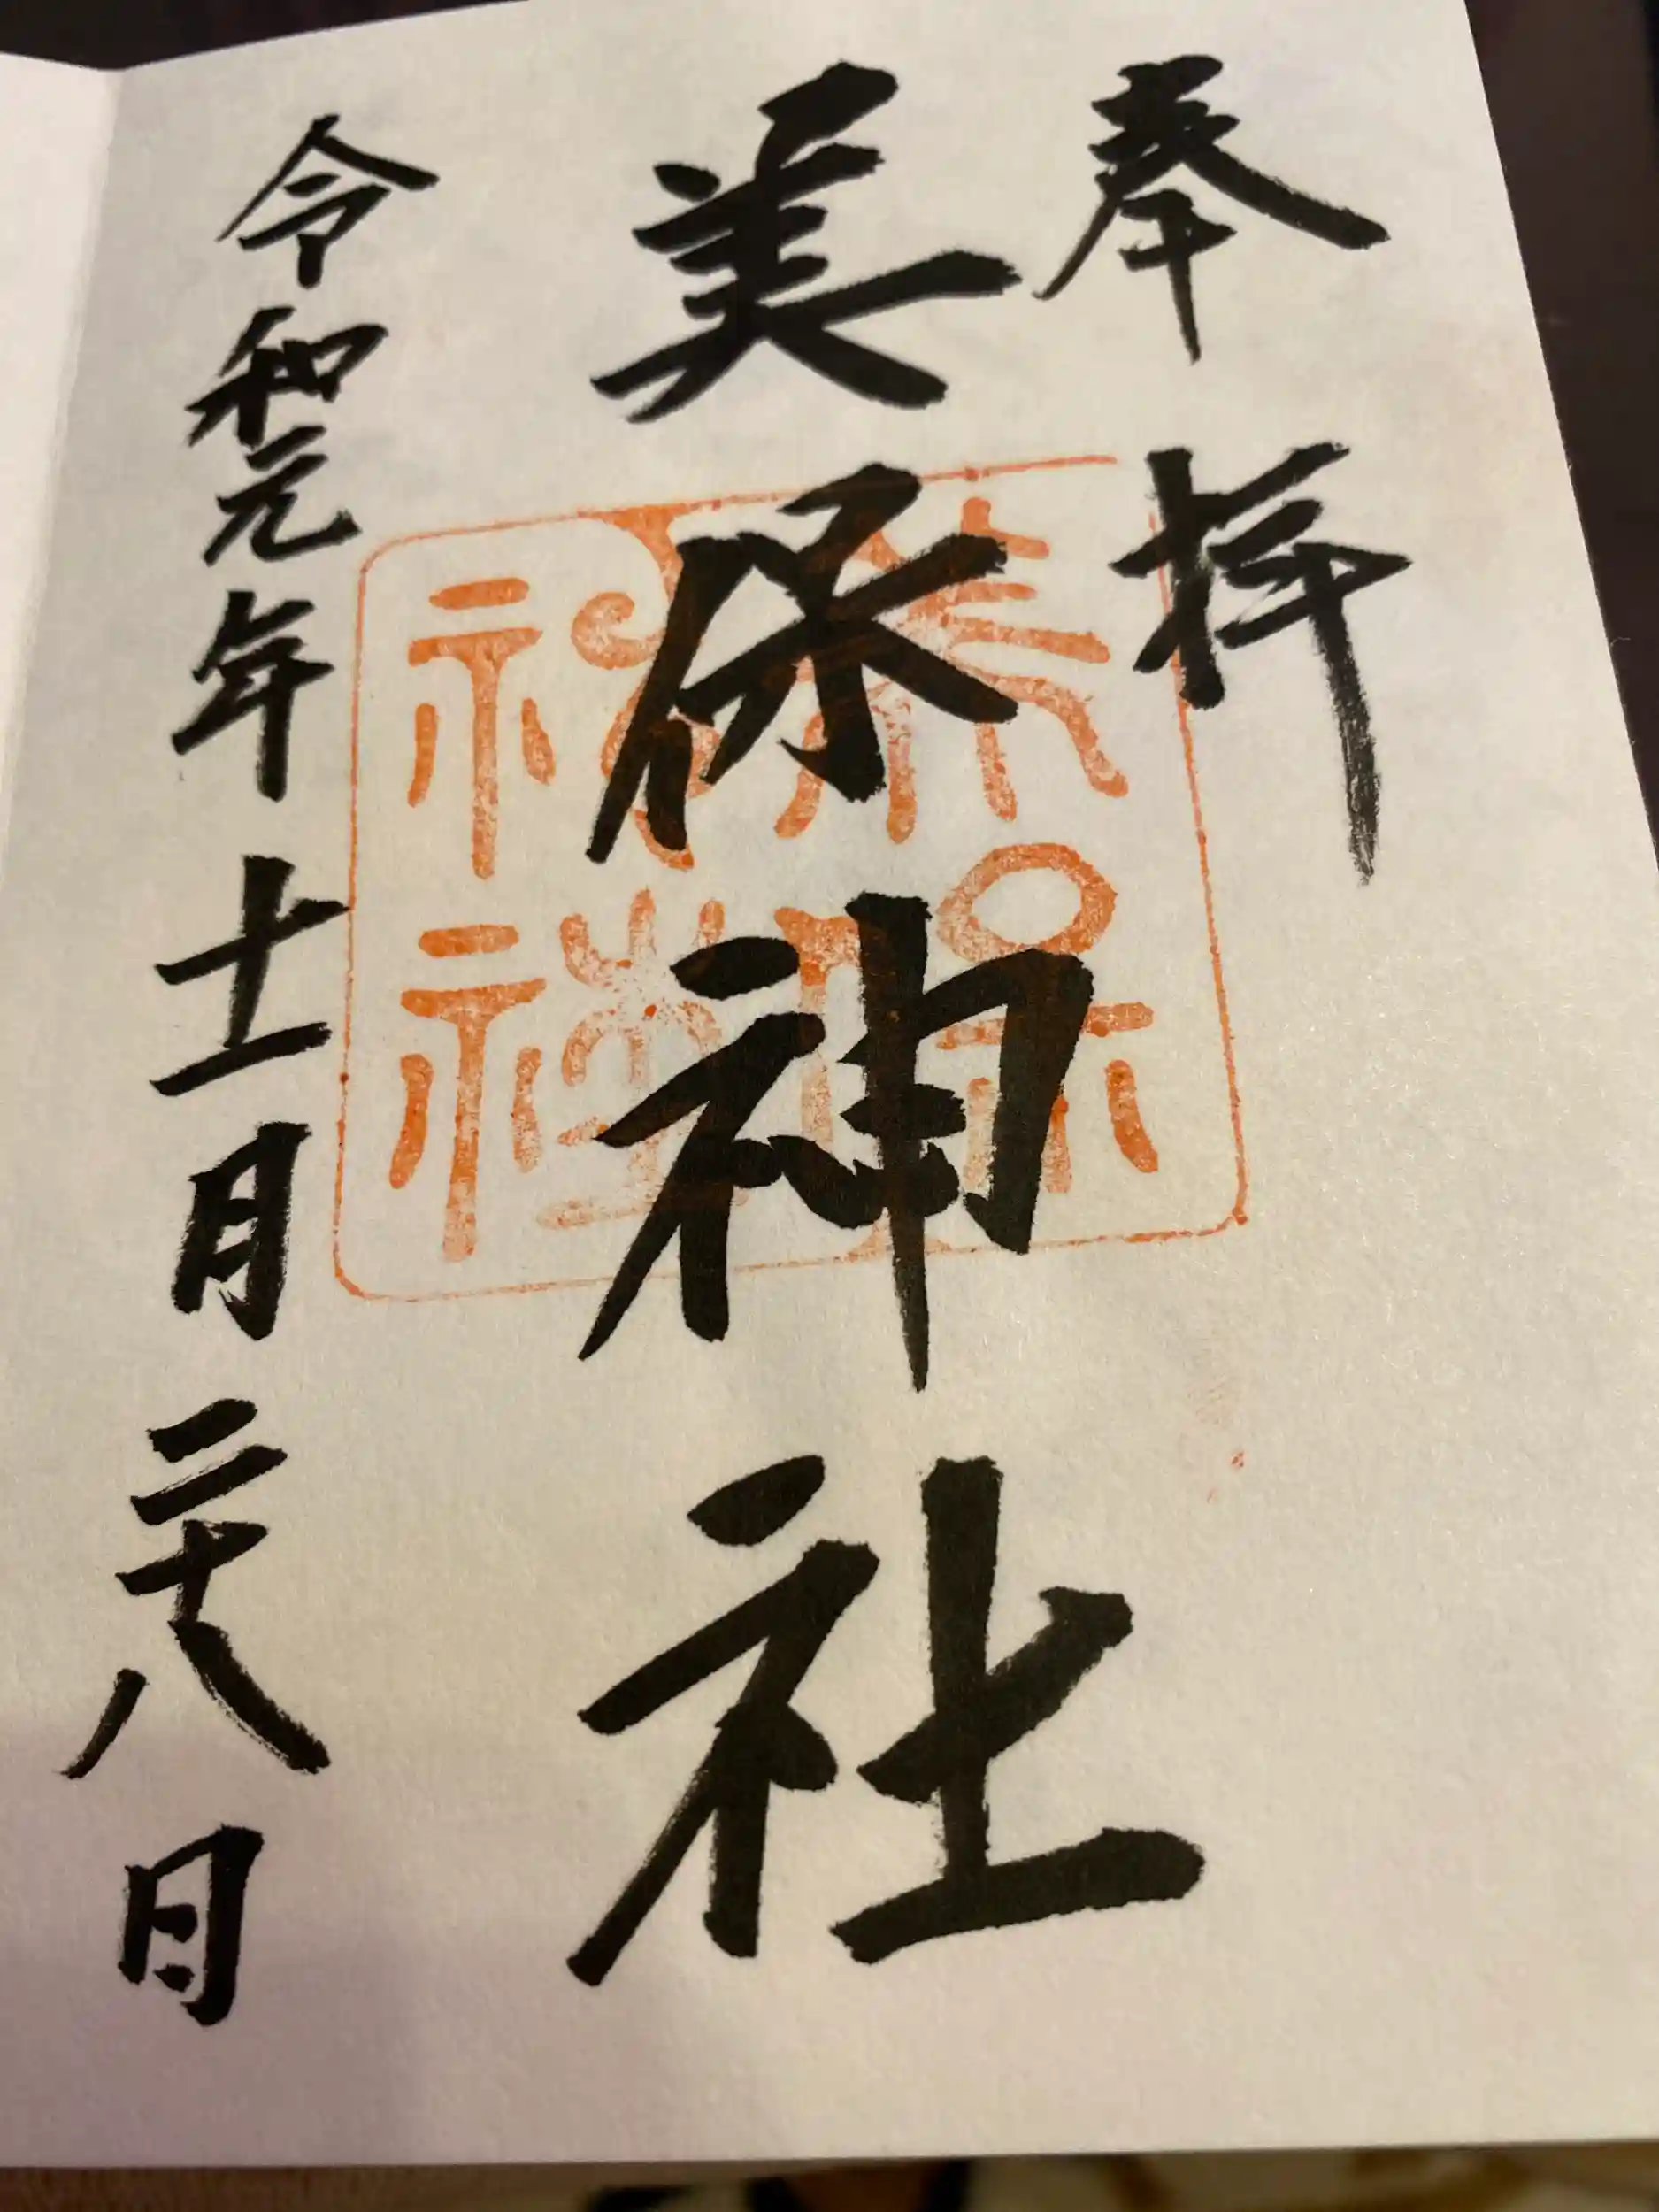 奉拝
美保神社
美保神社
令和元年十一月二十八日